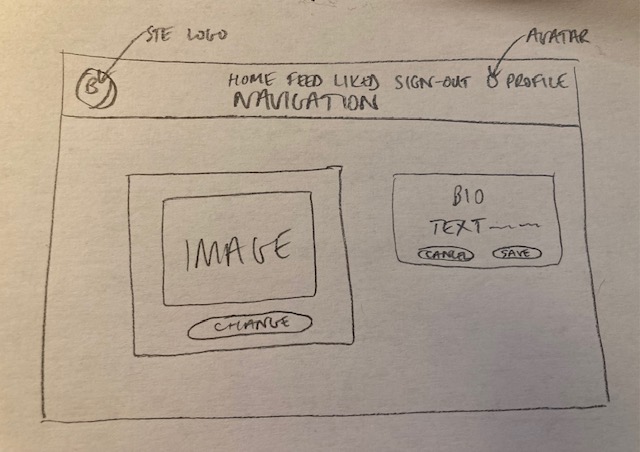 STE LOGO
AVATAR
B
HOME FEED LIKED SIGN-OUT PROFILE
NAVIGATION
IMAGE
CHANGE
BIO
TEXT
CANCEL SAVE